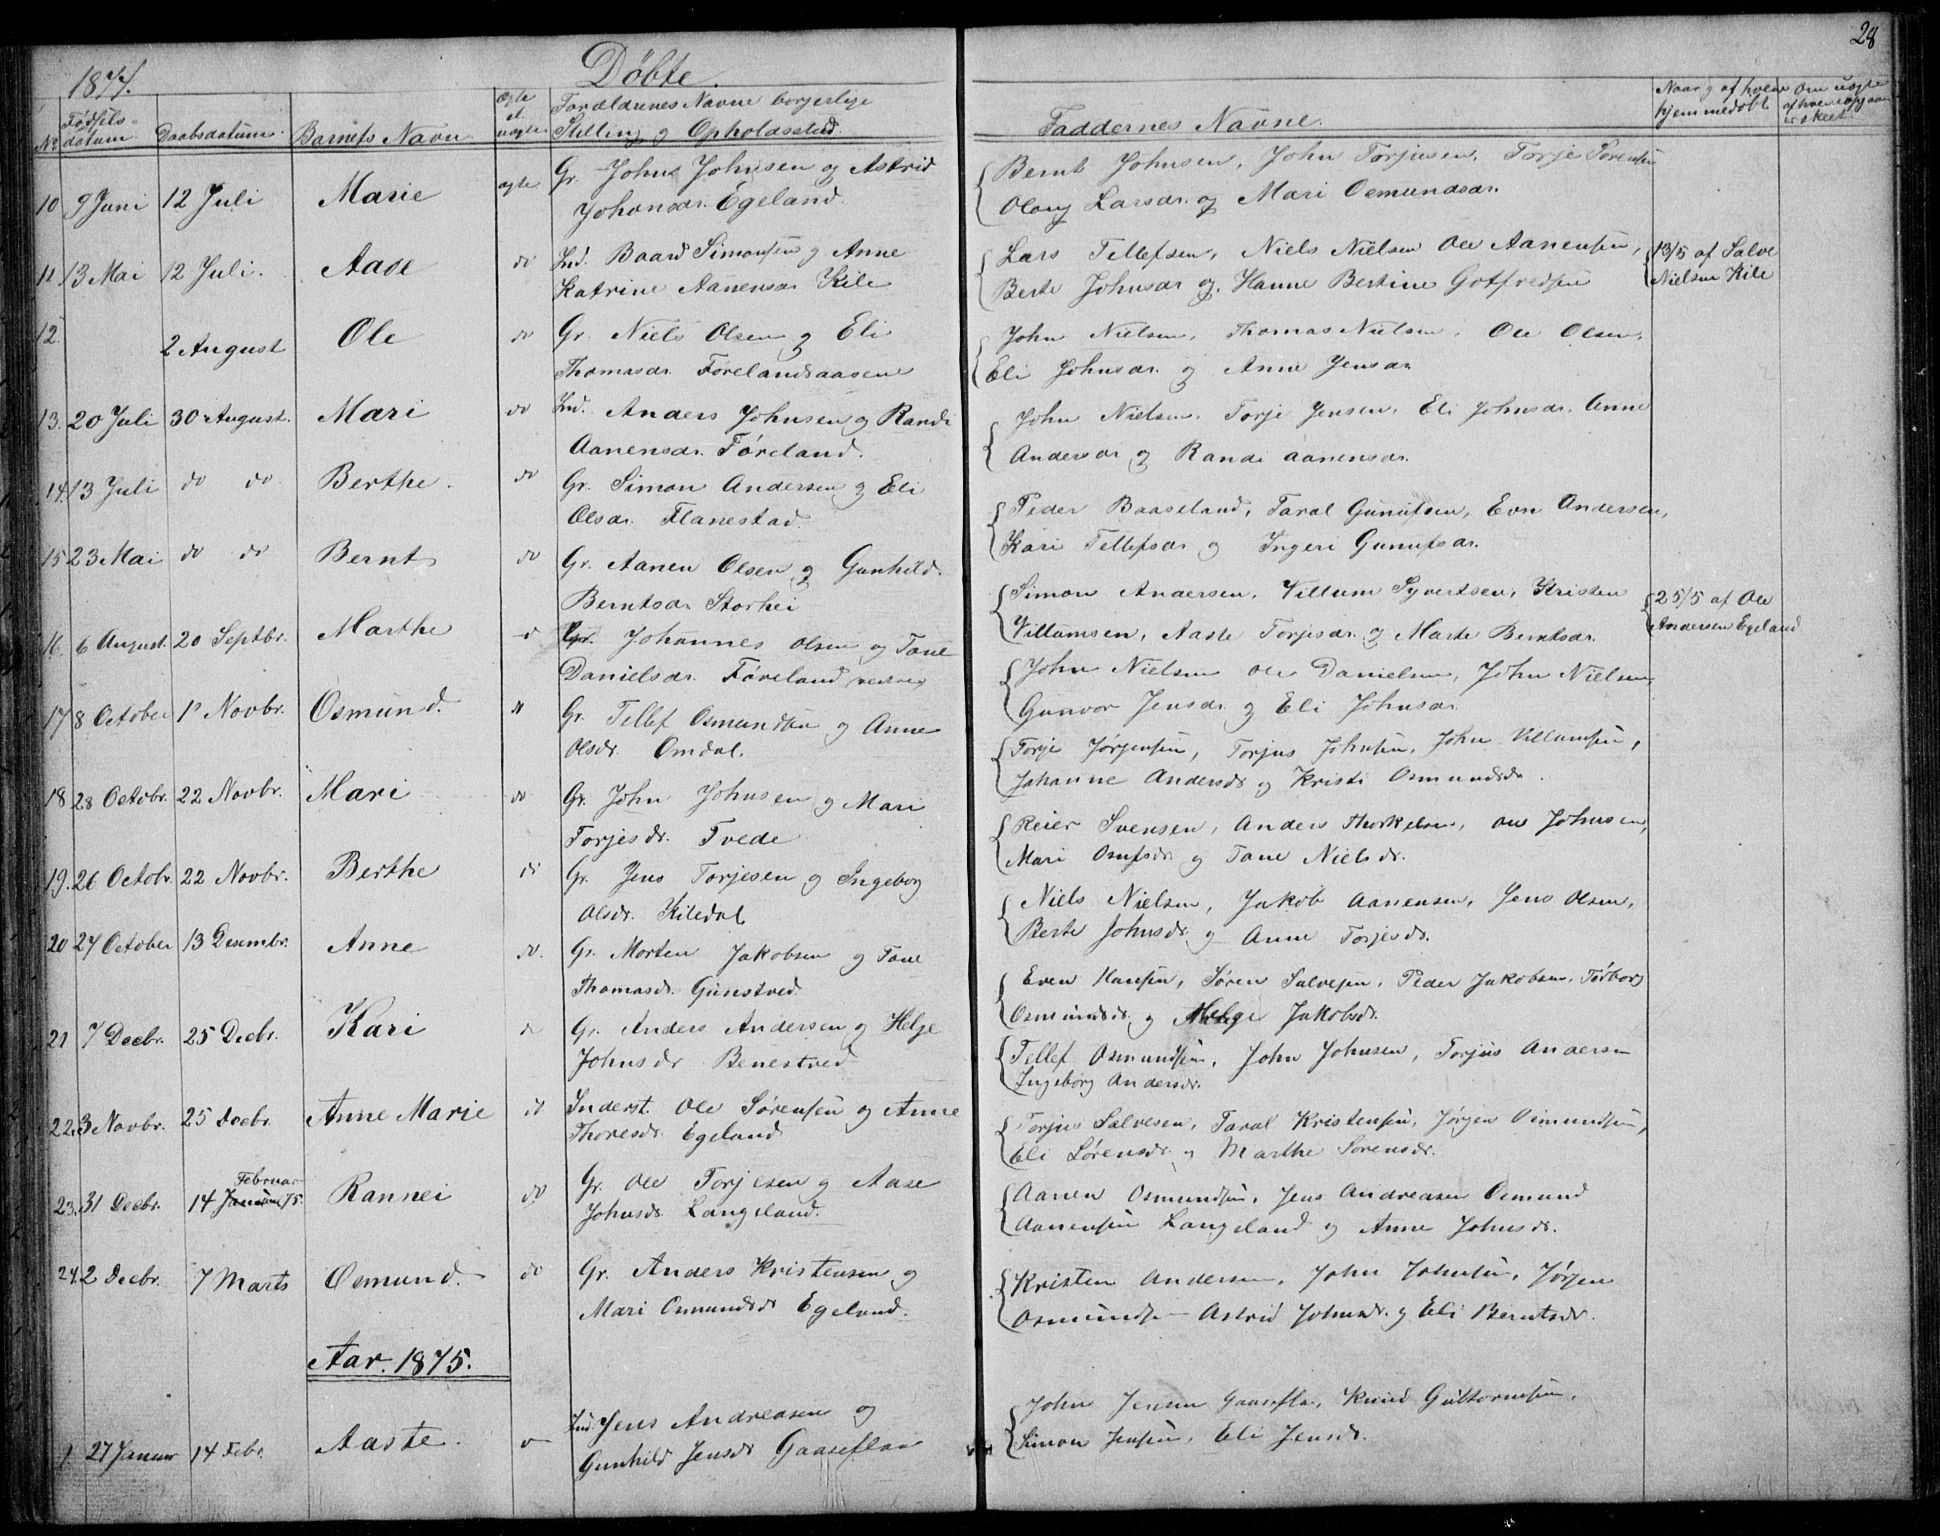 28
1874.
Döbte.
No
Fødsels-datum
Daabsdatum.
Barnets Navn
Ægte el. uægte
Forældrenes Navne borgerlige
Stilling og Opholdssted.
Faddernes Navne.
Naar og af hvem hjemmedøbt
Om uægte
10 9 Juni 12 Juli Marie ægte Gr. John Johnsen og Astrid
Johansdr. Egeland.
Bernt Johnsen, John Torjusen, Torje Sørensen
Olang Larsdr. og Mari Osmundsdr.
11 13 Mai 12 Juli. Aase do Ind. Baard Simonsen og Anne
Katrine Aanensdr Kile
Lars Tellefsen, Niels Nielsen Ole Aanensen,
Berte Johnsdr og Hanne Bertine Gotfredsen
13/5 af Salve
Nielsen Kile
12. 2 August Ole do Gr. Niels Olsen og Eli
Thomasdr. Førelandsaasene
John Nielsen, Thomas Nielsen, Ole Olsen,
Eli Johnsdr. og Anne Jensdr
13. 20 Juli 30 August. Mari do Ind. Anders Johnsen og Randi
Aanensdr. Føreland.
John Nielsen, Torje Jensen, Eli Johnsdr. Anne
Andersdr og Randi Aanensdr.
14. 13 Juli do do Berthe. do Gr. Simon Andersen og Eli
Olsdr. Flanestad.
Peder Baaseland, Taral Gunufsen, Even Andersen,
Kari Tellefsdr og Ingeri Gunufsdr.
15 23 Mai do do Bernt do Gr. Aanen Olsen og Gunhild.
Berntsdr Storhei
Simon Andersen, Villum Syvertsen, Kristen
Villumsen, Aaste Torjesdr. og Marte Berntsdr.
25/5 af Ole
Andersen Egeland
16. 6 August. 20 Septbr. Marthe d Gr. Johannes Olsen og Tone
Danielsdr. Føreland vestre
John Nielsen Ole Danielsen, John Nielsen,
Gunvor Jensdr. og Eli Johnsdr
17 8 October 1 Novbr. Osmund. Gr. Tellef Osmundsen og Anne
Olsdr. Omdal.
Torje Jørgensen, Torjus Johnsen, John Villumsen,
Johanne Andersdr og Kristi Osmundsdr.
18 28 Octobr. 22 Novbr. Mari do Gr. John Johnsen og Mari
Torjesdr. Tvede
Reier Svensen, Anders Thorkelsen, Ole Johnsen,
Mari Osufsdr og Tone Nielsdr.
19. 26 Octobr. 22 Novbr. Berthe do Gr. Jens Torjesen og Ingeborg
Olsdr. Kiledal
Niels Nielsen, Jakob Aanensen, Jens Olsen,
Berte Johnsdr. og Anne Torjesdr.
20 24 October 13 Desembr. Anne do. Gr. Morten Jakobsen og Tone
Thomasdr. Gunstved.
Even Hansen, Søren Salvesen, Peder Jakobsen, Torborg
Osmundsdr. og Helge Jakobsdr.
21 7 Decbr. 25 Decbr. Kari do Gr. Anders Andersen og Helje
Johnsdr Benestved
Tellef Osmundsen, John Johnsen, Torjus Andersen
Ingeborg Andersdr.
22. 3 Novbr. 25 Decbr. Anne Marie do Inderst. Ole Sørensen og Anne
Thoresdr. Egeland
Torjus Salvesen, Taral Kristensen, Jørgen Osmundsen,
Eli Sørensdr. og Marthe Sørensdr.
23. 31 Decbr. 14 Januar Februar 75. Rannei do Gr. Ole Torjesen og Aase
Johnsdr. Langeland.
Aanen Osmundsen, Jens Andreasen Osmund
Aanensen Langeland og Anne Johnsdr.
24. 2 Decbr. 7 Marts Osmund. do Gr. Anders Kristensen og
Mari Osmundsdr Egeland.
Kristen Andersen, John Johnsen, Jørgen
Osmundsen Astrid Johnsdr. og Eli Berntsdr.
Aar. 1875.
1. 27 Januar 14 Febr. Aaste. Ind. Jens Andreasen og
Gunhild Jensdr Gaaseflaa
John Jensen Gaasefla, Knud Guttormsen,
Simon Jensen, Eli Jensdr.